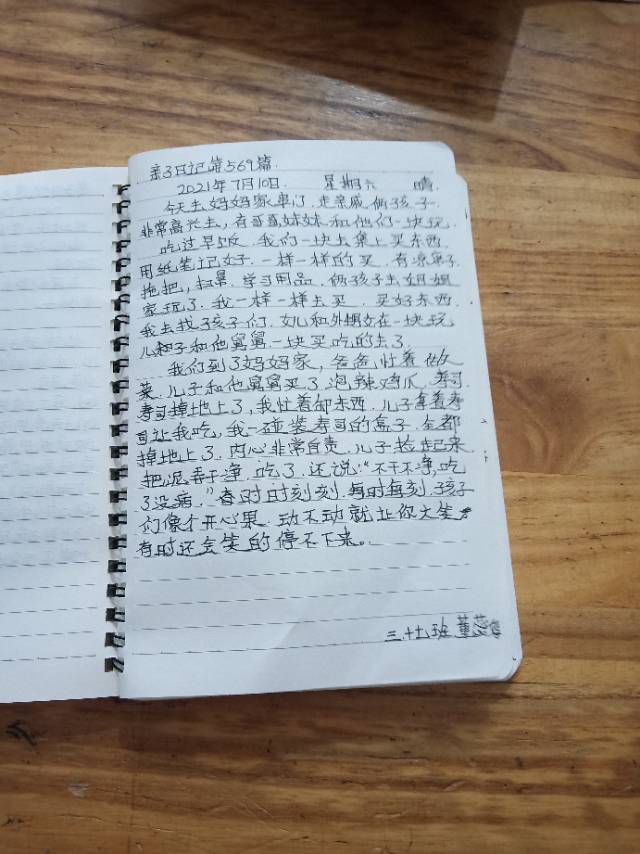 亲子日记第569篇
2021年7月10日. 星期六 晴.
今天去妈妈家串门.走亲戚俩孩子.
非常高兴去,有哥哥妹妹和他们一块玩.
吃过早饭.我们一块去集上买东西.
用纸笔记好.一样一样的买.有凉席子.
拖把,扫帚.学习用品.俩孩子去姐姐
家玩了.我一样一样去买.买好东西.
我去找孩子们.女儿和外甥女在一块玩.
儿子和他舅舅一块买吃的去了.
我们到了妈妈家,爸爸忙着做
菜.儿子和他舅舅买了泡辣鸡爪,寿司.
寿司掉地上了,我忙着卸东西.儿子拿着寿
司让我吃,我一碰装寿司的盒子.全都
掉地上了.内心非常自责.儿子捡起来.
把泥弄干净.吃了.还说:“不干不净,吃
了没病.”时时刻刻.每时每刻.孩子
们像个开心果.动不动就让你大笑.
有时还会笑的停不下来。
三十七班 董